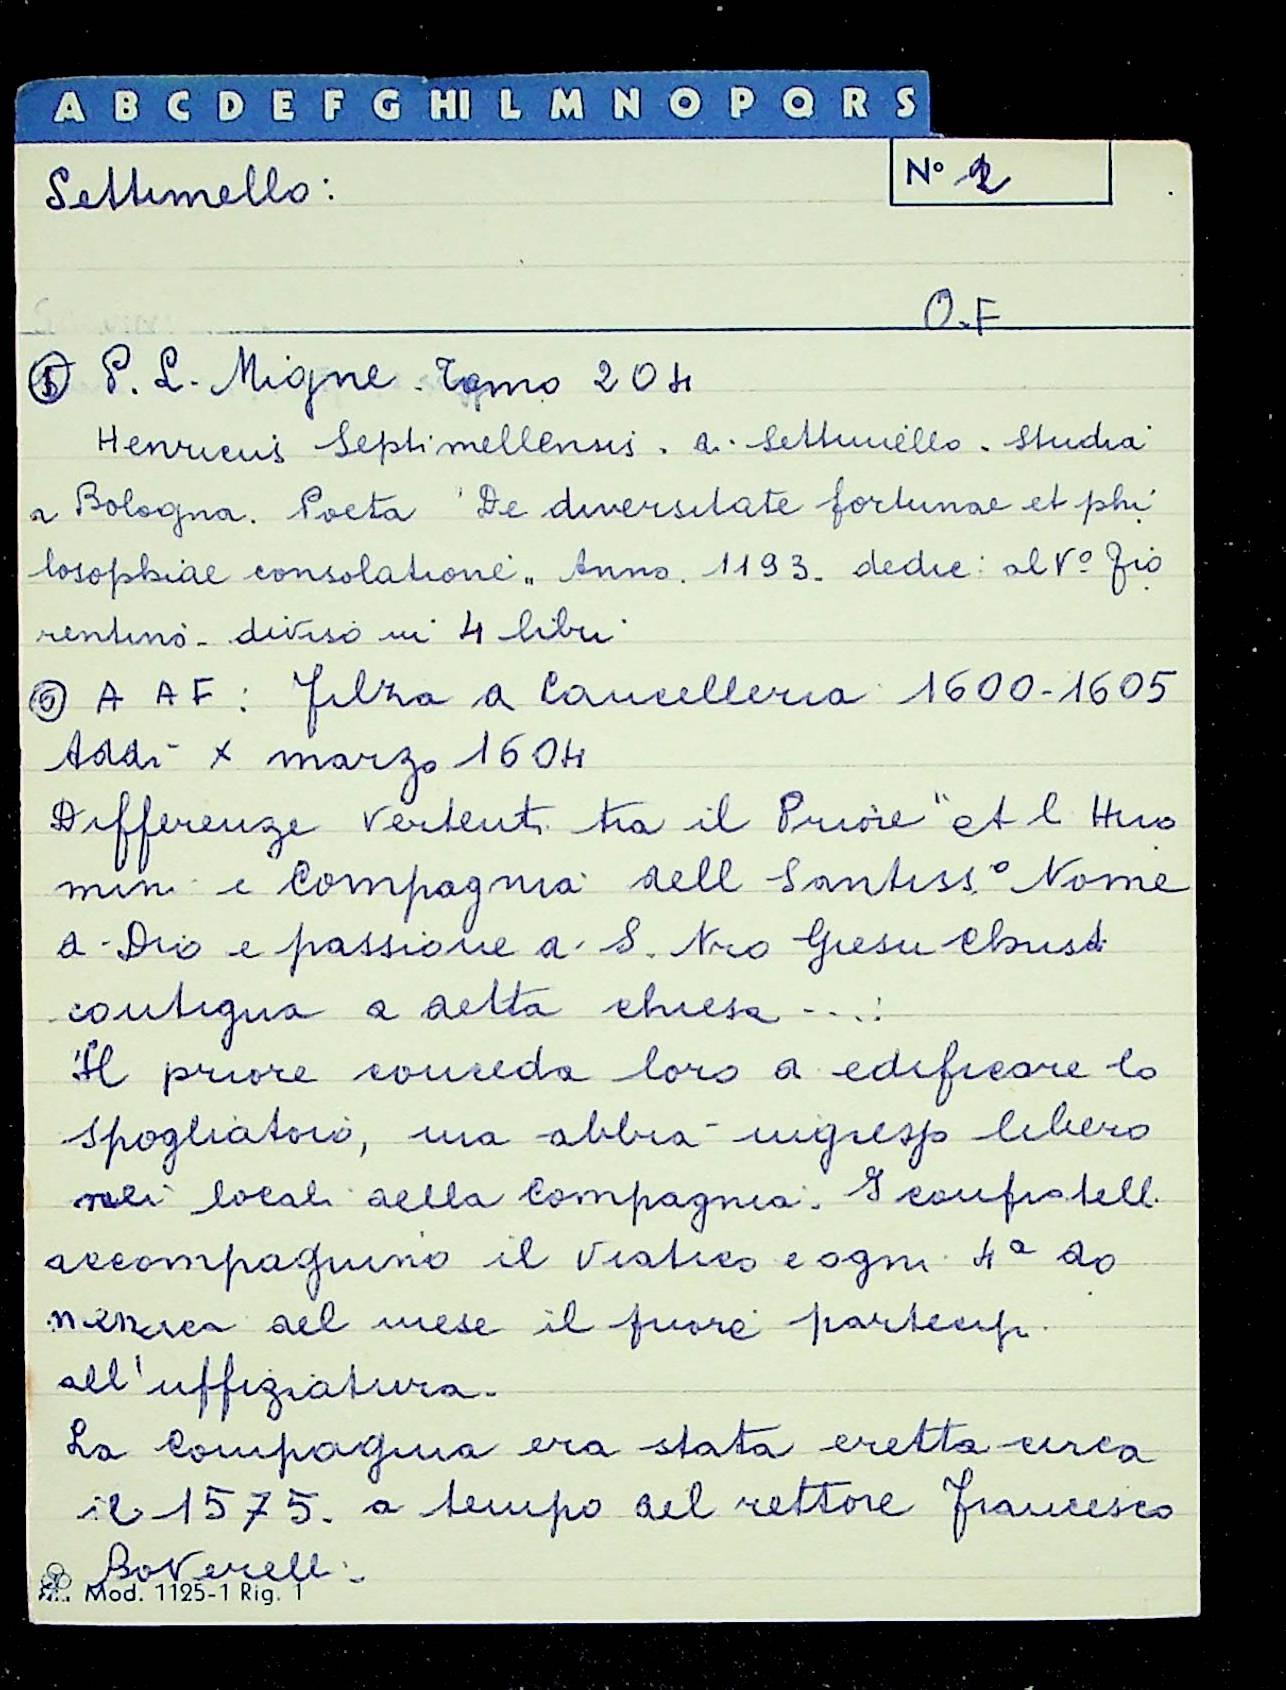 A B C D E F G HI L M N O P Q R S
Settimello:
N° 2
O.F
⑤ P. L. Migne. Tomo 204
Henricus Septimellensis. di Settimello. Studia
a Bologna. Poeta "De diversitate fortunae et phi
losophiae consolatione" Anno. 1193. dedic: al V° Fio
rentino. diviso in 4 libri
⑥ A A F: Filza di Cancelleria 1600-1605
Addì X marzo 1604
Differenze vertenti tra il Priore "et l Huo
mini e Compagnia dell Santiss.° Nome
di Dio e passione di S. Nro Giesu Christi
contigua a detta chiesa ....:
Il priore conceda loro di edificare lo
spogliatoio, ma abbia ingresso libero
nei locali della Compagnia. I confratelli
accompagnino il Viatico e ogni 4ª do
menica del mese il priore partecipi
all'uffiziatura.
La Compagnia era stata eretta circa
il 1575. a tempo del rettore Francesco
Boverelli.
Mod. 1125-1 Rig. 1